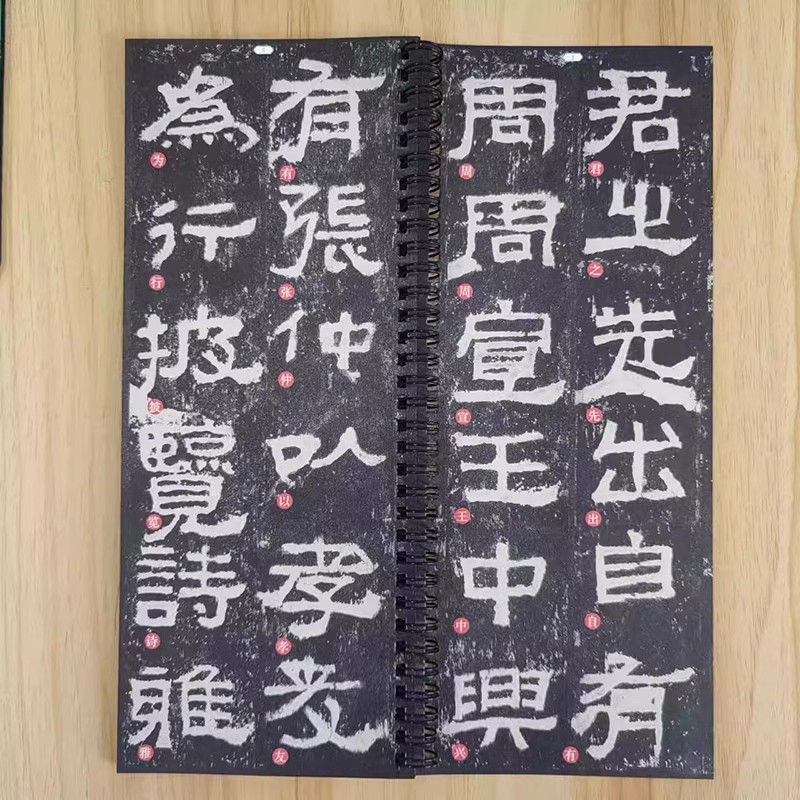 君之先出自有
君之先出自有
周周宣王中興
周周宣王中兴
有張仲以孝友
有张仲以孝友
為行披覽詩雅
为行披览诗雅